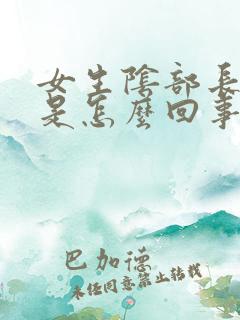 女生陰部長
是怎麼回事
巴加德
未任同意禁止转载